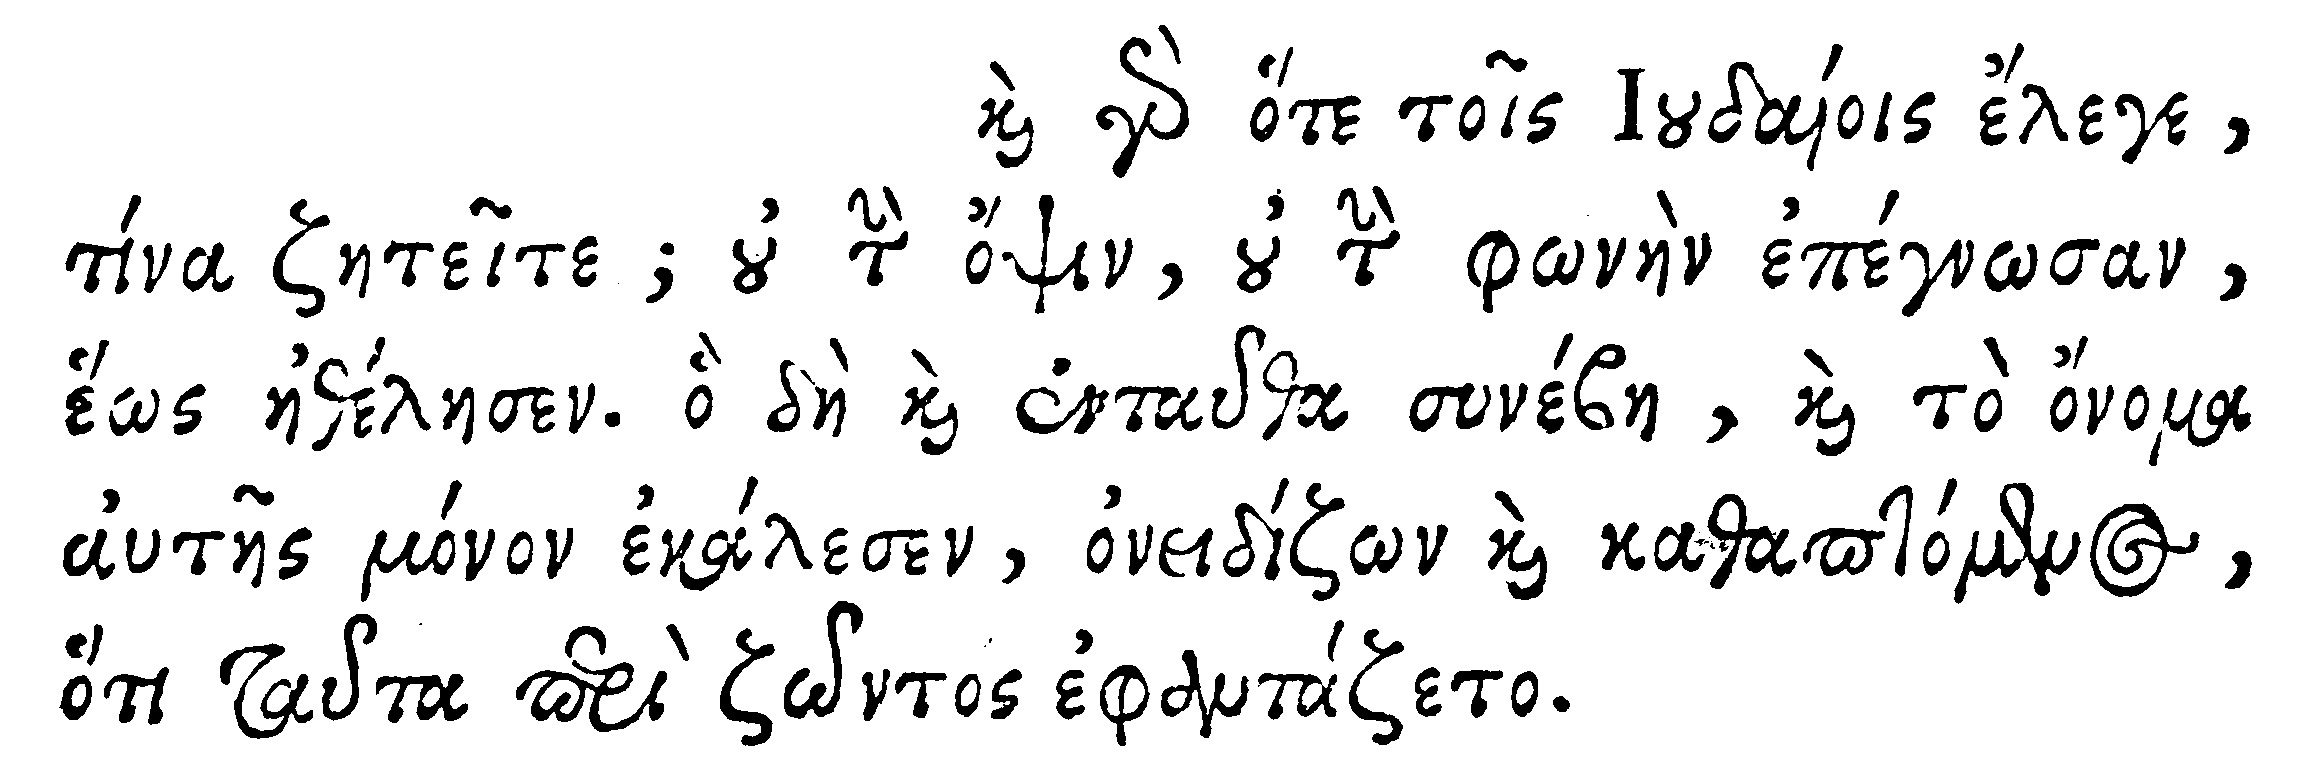 καὶ γὰρ ὅτε τοῖς Ἰουδαίοις ἔλεγε,
τίνα ζητεῖτε; οὐ τὴν ὄψιν, οὐ τὴν φωνὴν ἐπέγνωσαν,
ἕως ἠθέλησεν. ὃ δὴ καὶ ἐνταῦθα συνέβη, καὶ τὸ ὄνομα
αὐτῆς μόνον ἐκάλεσεν, ὀνειδίζων καὶ καθαπτόμενος,
ὅτι ταῦτα περὶ ζῶντος ἐφαντάζετο.